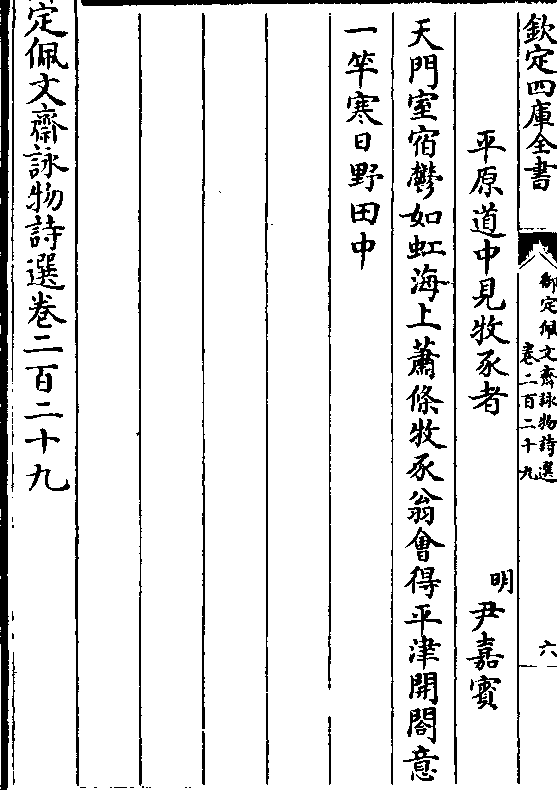 欽定四庫全書
御定佩文齋詠物詩選
卷二百二十九
六
平原道中見牧豕者
明
尹嘉賓
天門室宿鬱如虹海上蕭條牧豕翁會得平津開閤意
一竿寒日野田中
定佩文齋詠物詩選卷二百二十九